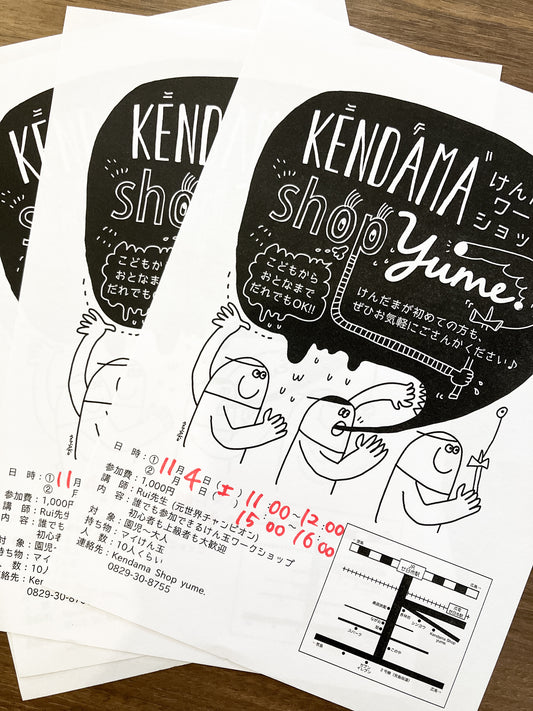 KENDAMA
shop
Yume.
けん
ワー
ショッ
こどもから
おとなまで
だれでもOK!!
けんだまが初めての方も、
ぜひお気軽にごさんかください♪
日 時:① 11月 4日(土) 11:00~12:00
② 月 日( ) 15:00~16:00
参加費:1,000円
講 師:Rui先生(元世界チャンピオン)
内 容:誰でも参加できるけん玉ワークショップ
初心者も上級者も大歓迎
対 象:園児~大人
持ち物:マイけん玉
人 数:10人くらい
連絡先:Kendama Shop yume.
0829-30-8755
JR
廿日市駅
Kendama Shop
yume.
KEND
sho
こどもか
おとなまで
だれでもOK
日 時:① 11
②
参加費:1,000円
講 師:Rui先生
内 容:誰でも
初心者
対 象:園児~
持ち物:マイ
人 数:10人
連絡先:Ker
0829-30-8
KE